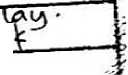 lay.
k